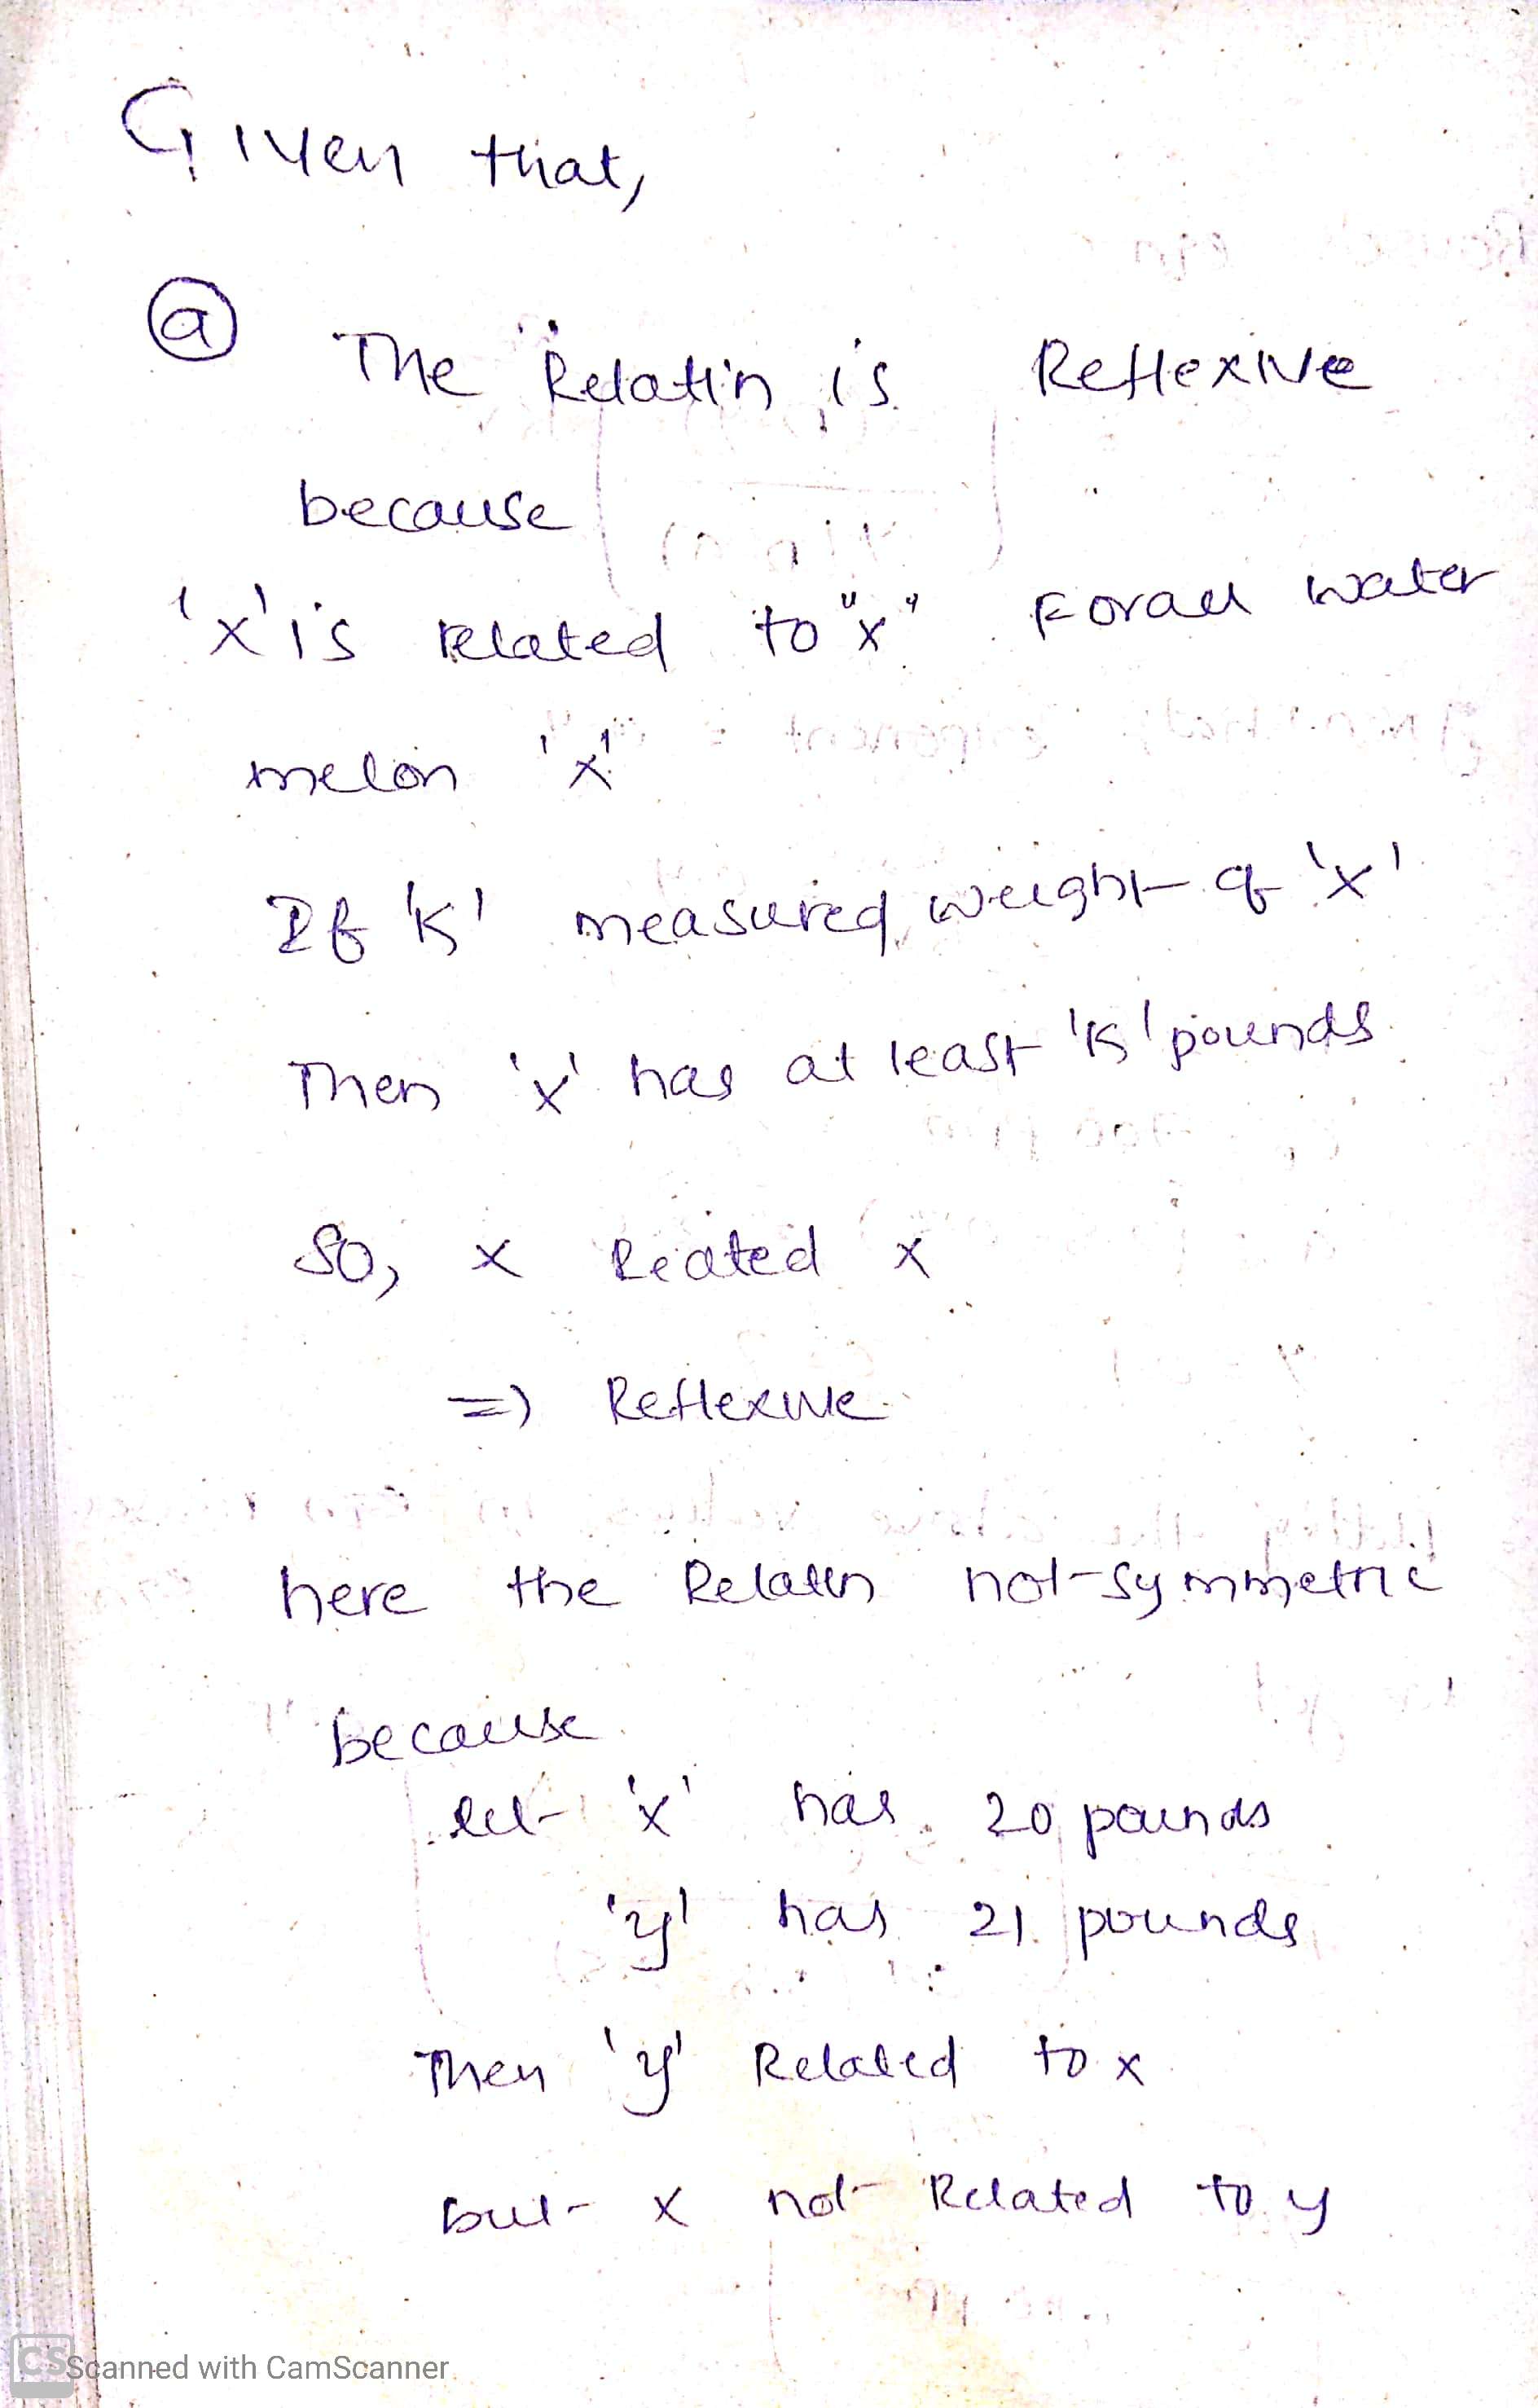 Given that,
(a) The Relatin is Reflexive
because
'x' is related to "x" Forall water
melon 'x'
If 'K' measured weight of 'x'
Then 'x' has at least 'K' pounds
So, x Reated x
=) Reflexive
here the Relatin not-symmetric
because
let 'x' has 20 pounds
'y' has 21 pounds
Then 'y' Related to x
but x not Related to y
CS Scanned with CamScanner